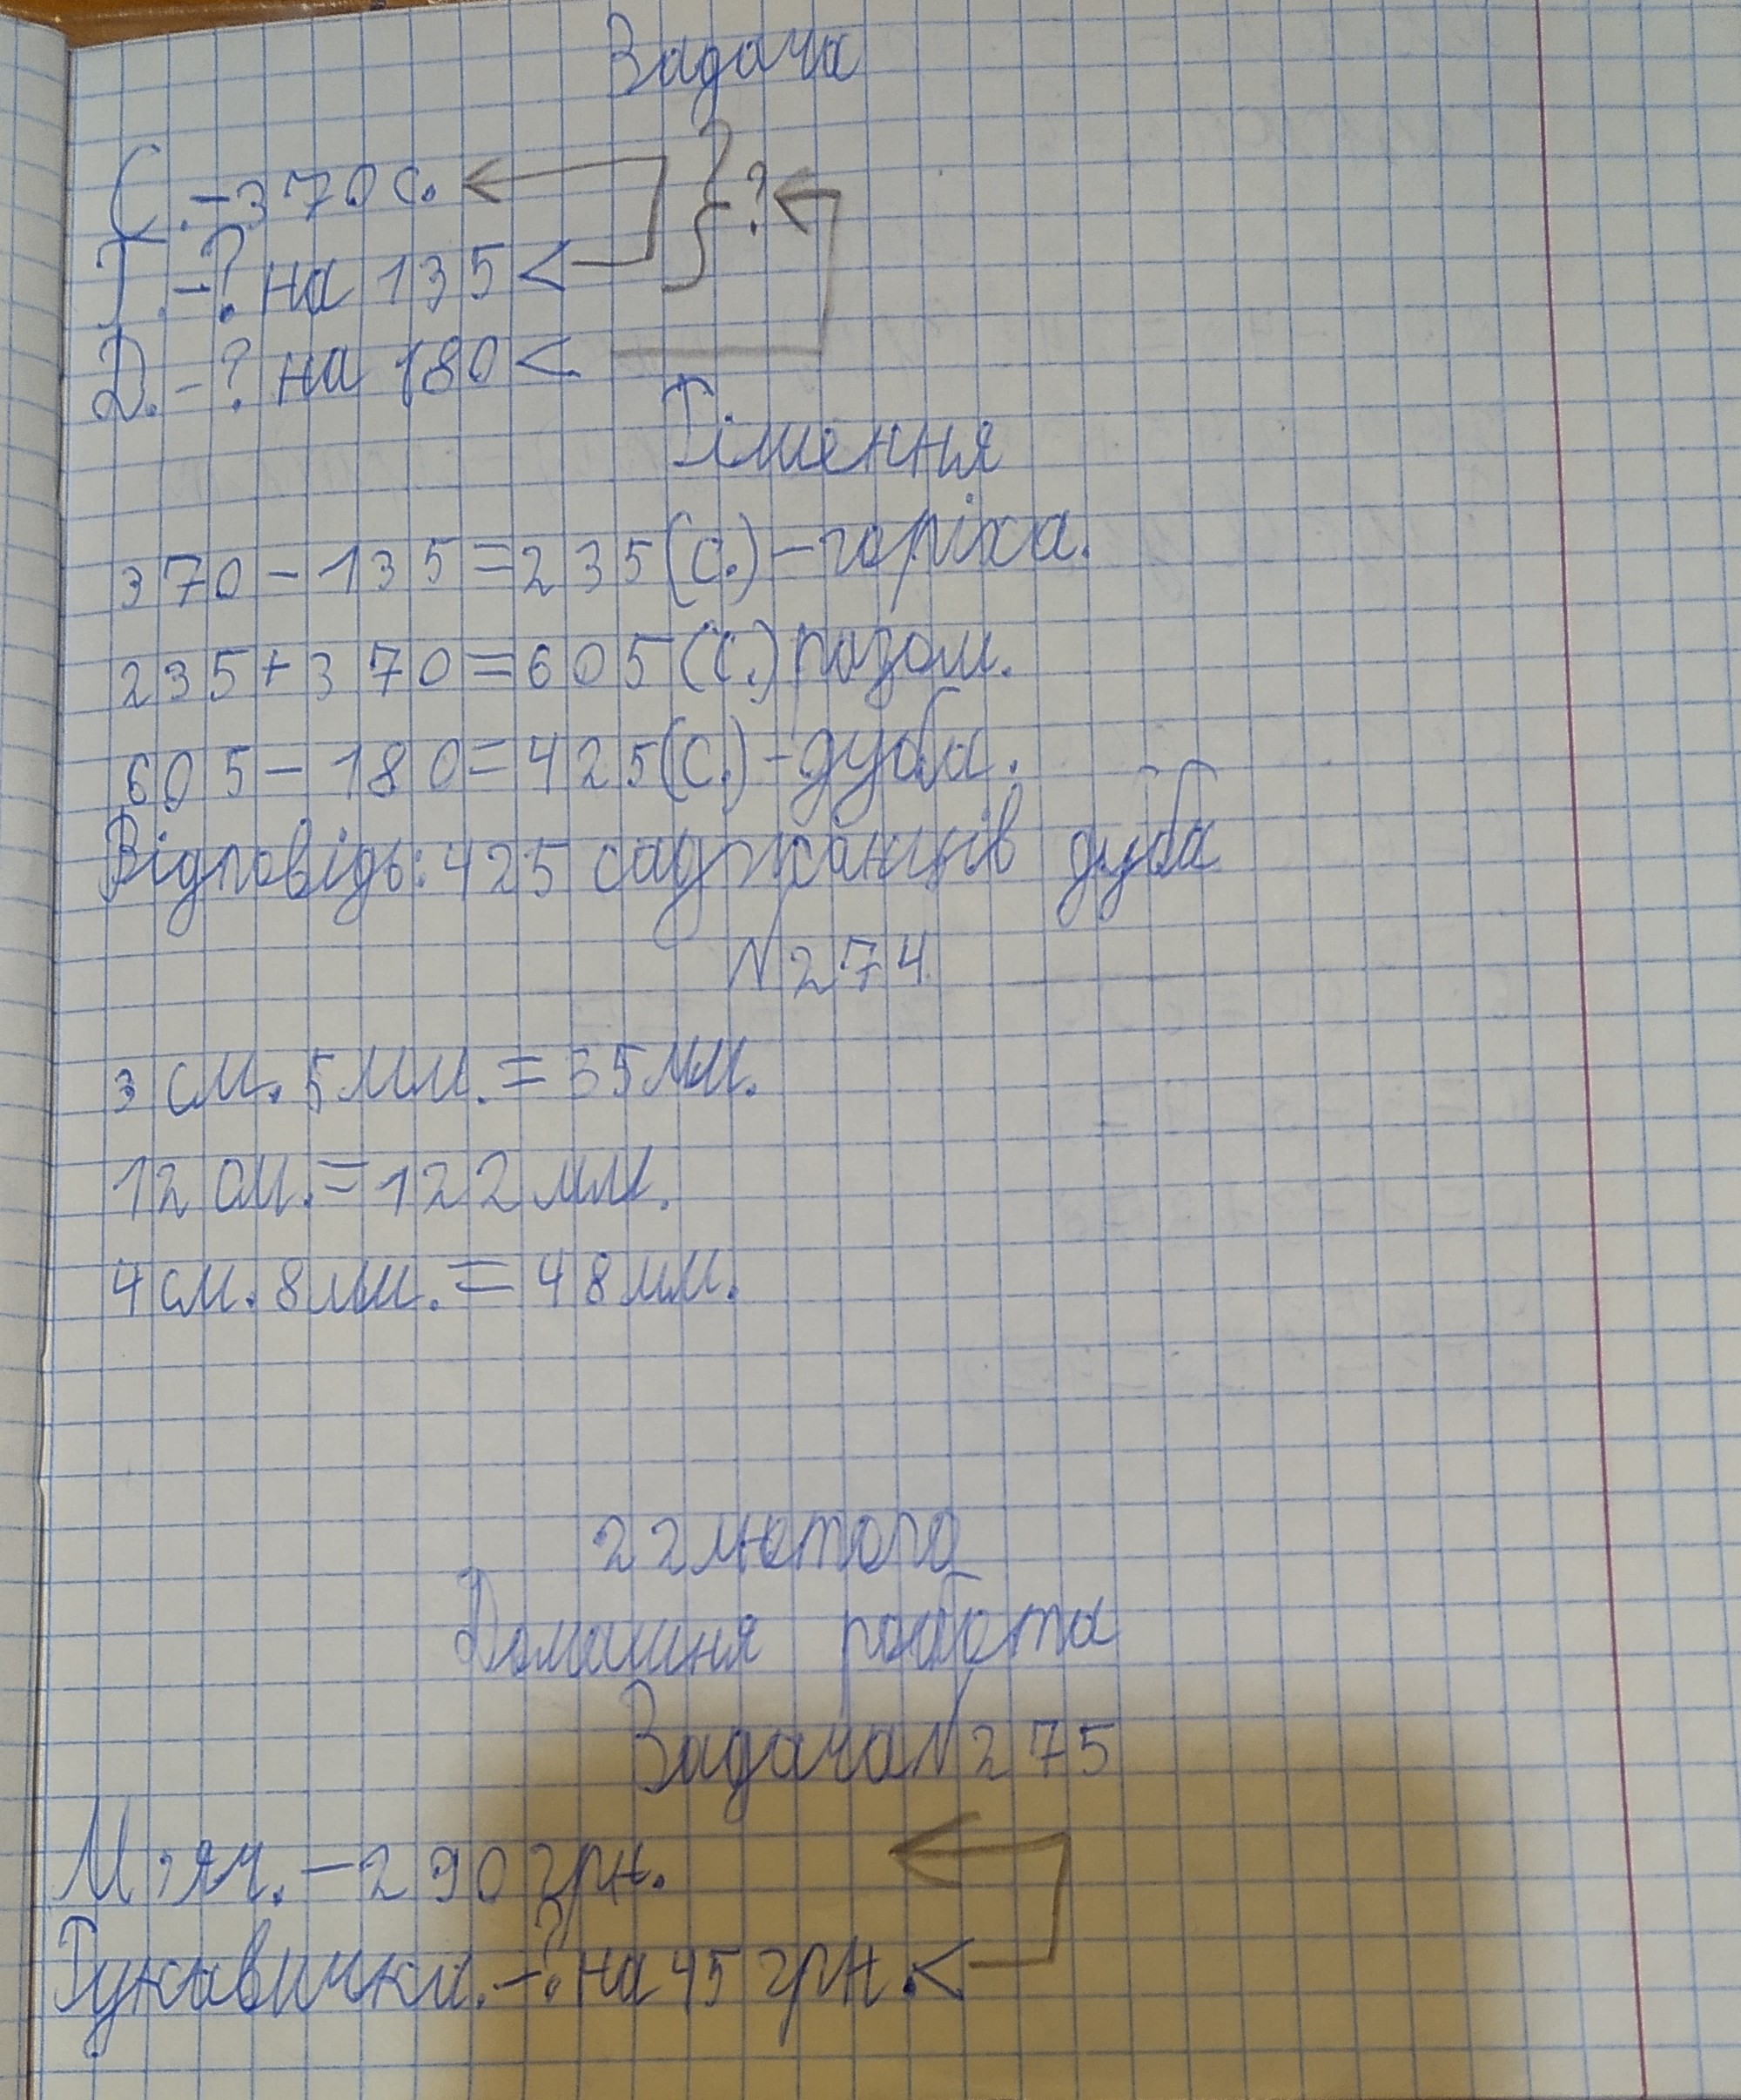 Задача
С. - 370 с. } ?
Г. - ? на 135 <
Д. - ? на 180 <
Рішення
370 - 135 = 235 (с.) - горіха.
235 + 370 = 605 (с.) разом.
605 - 180 = 425 (с.) - дуба.
Відповідь: 425 саджанців дуба
N 274
3 см. 5 мм. = 35 мм.
12 см. = 122 мм.
4 см. 8 мм. = 48 мм.
22 лютого
Домашня робота
Задача N 275
М'яч. - 290 грн.
Рукавички. - ? на 45 грн. <